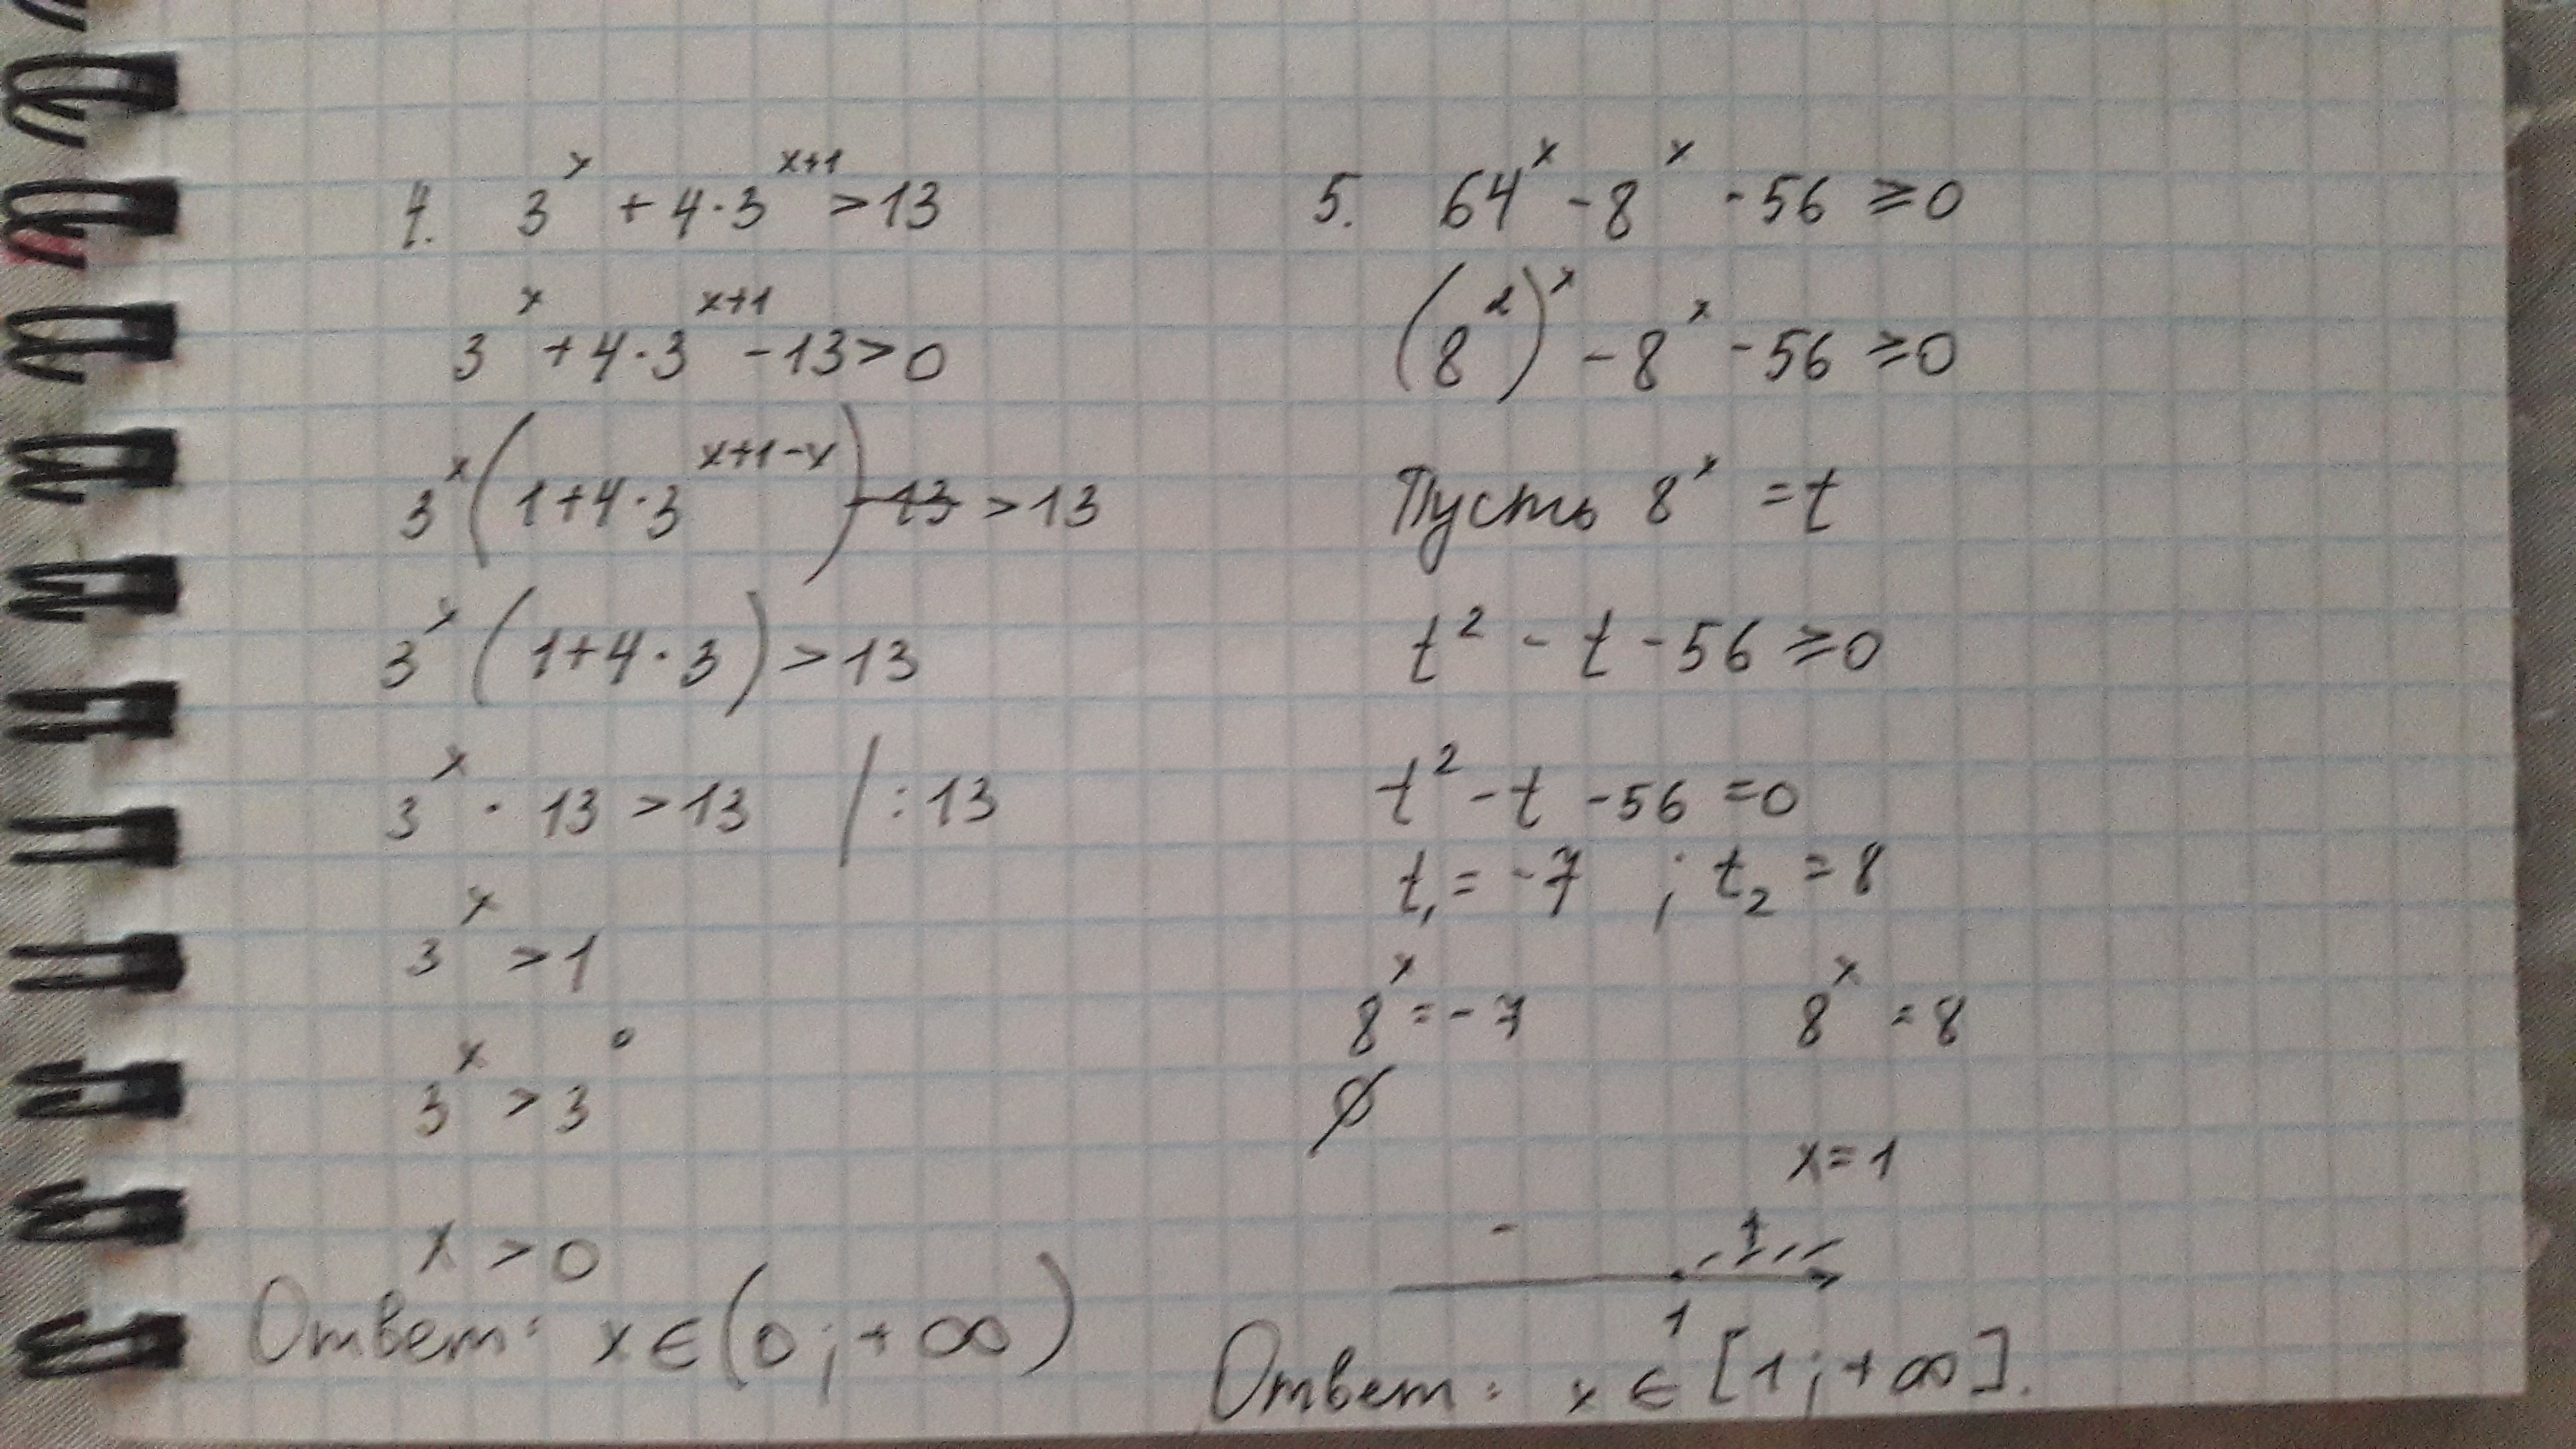 4. 3^x + 4·3^(x+1) > 13
3^x + 4·3^(x+1) - 13 > 0
3^x (1 + 4·3^(x+1-x)) ~~- 13~~ > 13
3^x (1 + 4·3) > 13
3^x · 13 > 13 / : 13
3^x > 1
3^x > 3^0
x > 0
Ответ: x ∈ (0; +∞)
5. 64^x - 8^x - 56 ⩾ 0
(8^2)^x - 8^x - 56 ⩾ 0
Пусть 8^x = t
t^2 - t - 56 ⩾ 0
t^2 - t - 56 = 0
t₁ = -7 ; t₂ = 8
8^x = -7 8^x = 8
∅
x = 1
- +
1
Ответ: x ∈ [1; +∞].